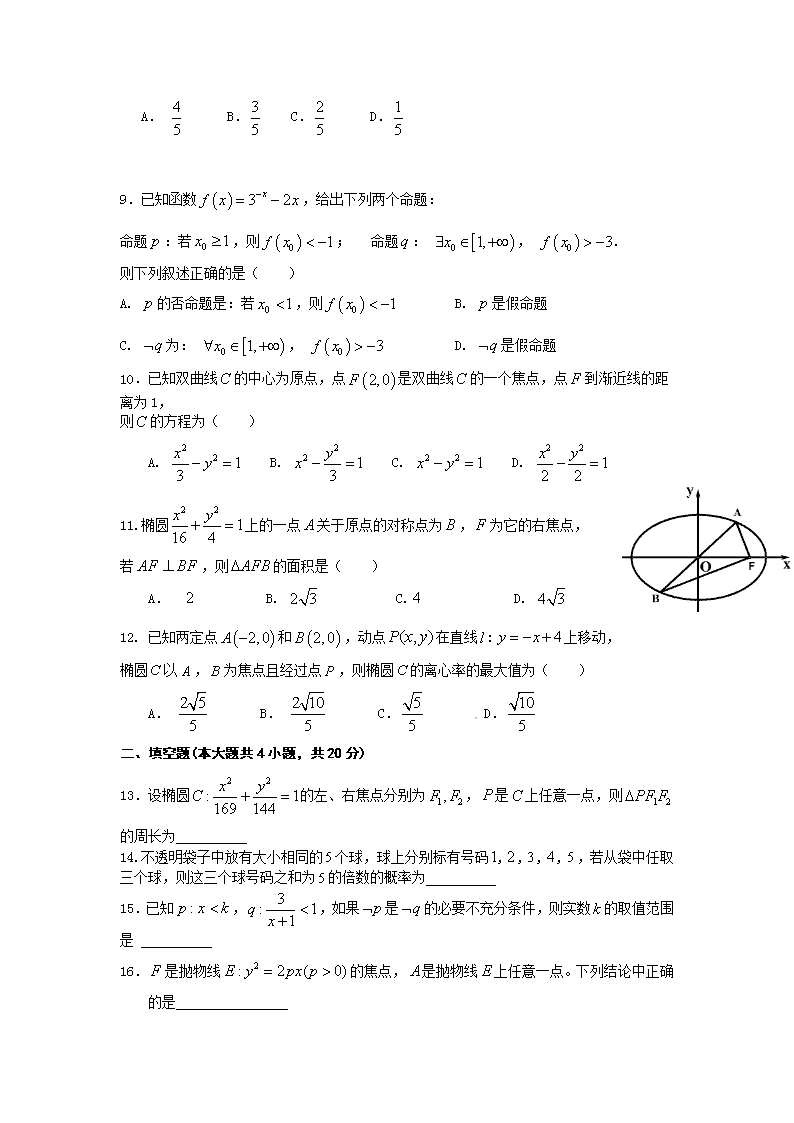 A. 4/5 B. 3/5 C. 2/5 D. 1/5
9.已知函数 f(x)=3^{-x}-2x ,给出下列两个命题:
命题 p :若 x₀≥1 ,则 f(x₀)<-1 ; 命题 q : ∃x₀∈[1,+∞) , f(x₀)>-3.
则下列叙述正确的是( )
A. p 的否命题是:若 x₀<1 ,则 f(x₀)<-1 B. p 是假命题
C. ¬q 为: ∀x₀∈[1,+∞) , f(x₀)>-3 D. ¬q 是假命题
10.已知双曲线 C 的中心为原点,点 F(2,0) 是双曲线 C 的一个焦点,点 F 到渐近线的距
离为1,
则 C 的方程为( )
A. x²/3-y²=1 B. x²-y²/3=1 C. x²-y²=1 D. x²/2-y²/2=1
11.椭圆 x²/16+y²/4=1 上的一点 A 关于原点的对称点为 B , F 为它的右焦点,
若 AF⊥BF ,则 ΔAFB 的面积是( )
A. 2 B. 2√3 C. 4 D. 4√3
y
A
O
F
x
B
12. 已知两定点 A(-2,0) 和 B(2,0) ,动点 P(x,y) 在直线 l:y=-x+4 上移动,
椭圆 C 以 A , B 为焦点且经过点 P ,则椭圆 C 的离心率的最大值为( )
A. 2√5/5 B. 2√10/5 C. √5/5 D. √10/5
二、填空题(本大题共4小题,共20分)
13.设椭圆 C:x²/169+y²/144=1 的左、右焦点分别为 F₁,F₂ , P 是 C 上任意一点,则 ΔPF₁F₂
的周长为__________
14.不透明袋子中放有大小相同的5个球,球上分别标有号码1,2,3,4,5,若从袋中任取
三个球,则这三个球号码之和为5的倍数的概率为__________
15.已知 p:x<k , q:3/(x+1)<1 ,如果 ¬p 是 ¬q 的必要不充分条件,则实数 k 的取值范围
是 __________
16. F 是抛物线 E:y²=2px(p>0) 的焦点, A 是抛物线 E 上任意一点。下列结论中正确
的是________________